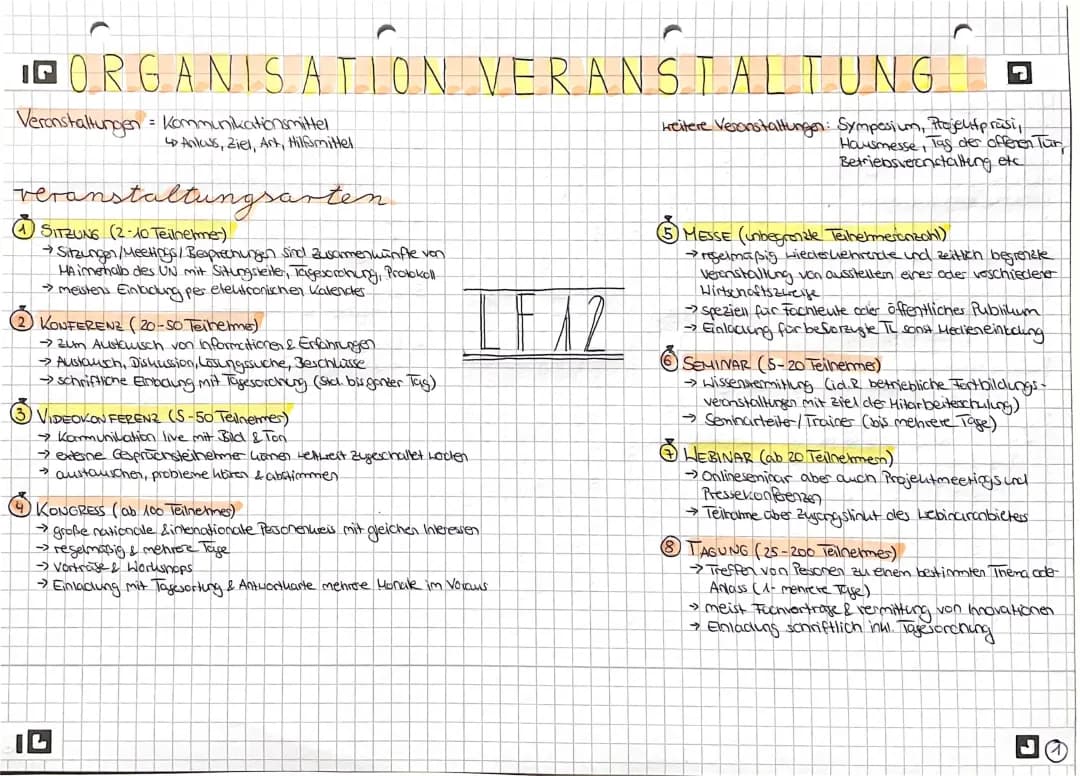 ORGANISATION VERANSTALTUNG
Veranstaltungen = Kommunikationsmittel
↳ Anlass, Ziel, Art, Hilfsmittel
weitere Veranstaltungen: Symposium, Projektpräsi,
Hausmesse, Tag der offenen Tür,
Betriebsveranstaltung etc
veranstaltungsarten
① SITZUNG (2-10 Teilnehmer)
→ Sitzungen/Meetings/Besprechungen sind Zusammenkünfte von
MA innerhalb des UN mit Sitzungsleiter, Tagesordnung, Protokoll
→ meistens Einladung per elektronischen Kalender
② KONFERENZ (20-50 Teilnehmer)
→ zum Austausch von Informationen & Erfahrungen
→ Austausch, Diskussion, Lösungssuche, Beschlüsse
→ schriftliche Einladung mit Tagesordnung (Std. bis ganzer Tag)
③ VIDEOKONFERENZ (5-50 Teilnehmer)
→ Kommunikation live mit Bild & Ton
→ externe Gesprächsteilnehmer können weltweit zugeschaltet werden
→ austauschen, probleme klären & abstimmen
④ KONGRESS (ab 100 Teilnehmer)
→ große nationale & internationale Personenkreis mit gleichen Interessen
→ regelmäßig & mehrere Tage
→ Vorträge & Workshops
→ Einladung mit Tagesortung & Antwortkarte mehrere Monate im Voraus
LF 12
⑤ MESSE (unbegrenzte Teilnehmeranzahl)
→ regelmäßig wiederkehrende und zeitlich begrenzte
Veranstaltung von ausstellern eines oder verschiedener
Wirtschaftszweige
→ speziell für Fachleute oder öffentliches Publikum
→ Einladung für bevorzugte TL sonst Medieneinladung
⑥ SEMINAR (5-20 Teilnehmer)
→ Wissensvermittlung (i.d.R. betriebliche Fortbildungs-
veranstaltungen mit Ziel der Mitarbeiterschulung)
→ Seminarleiter/Trainer (bis mehrere Tage)
⑦ WEBINAR (ab 20 Teilnehmern)
→ Onlineseminar aber auch Projektmeetings und
Pressekonferenzen
→ Teilnahme über Zugangslink des Webinaranbieters
⑧ TAGUNG (25-200 Teilnehmer)
→ Treffen von Personen zu einem bestimmten Thema oder
Anlass (1- mehrere Tage)
→ meist Fachvorträge & vermittlung von Innovationen
→ Einladung schriftlich inkl. Tagesordnung
①